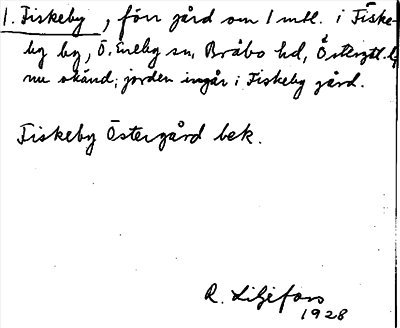 1. Fiskeby, förr gård om 1 mtl. i Fiske-
by by, Ö. Eneby sn, Bråbo hd, Östergötl. l.,
nu okänd; jorden ingår i Fiskeby gård.
Fiskeby Östergård bek.
R. Liljefors
1928